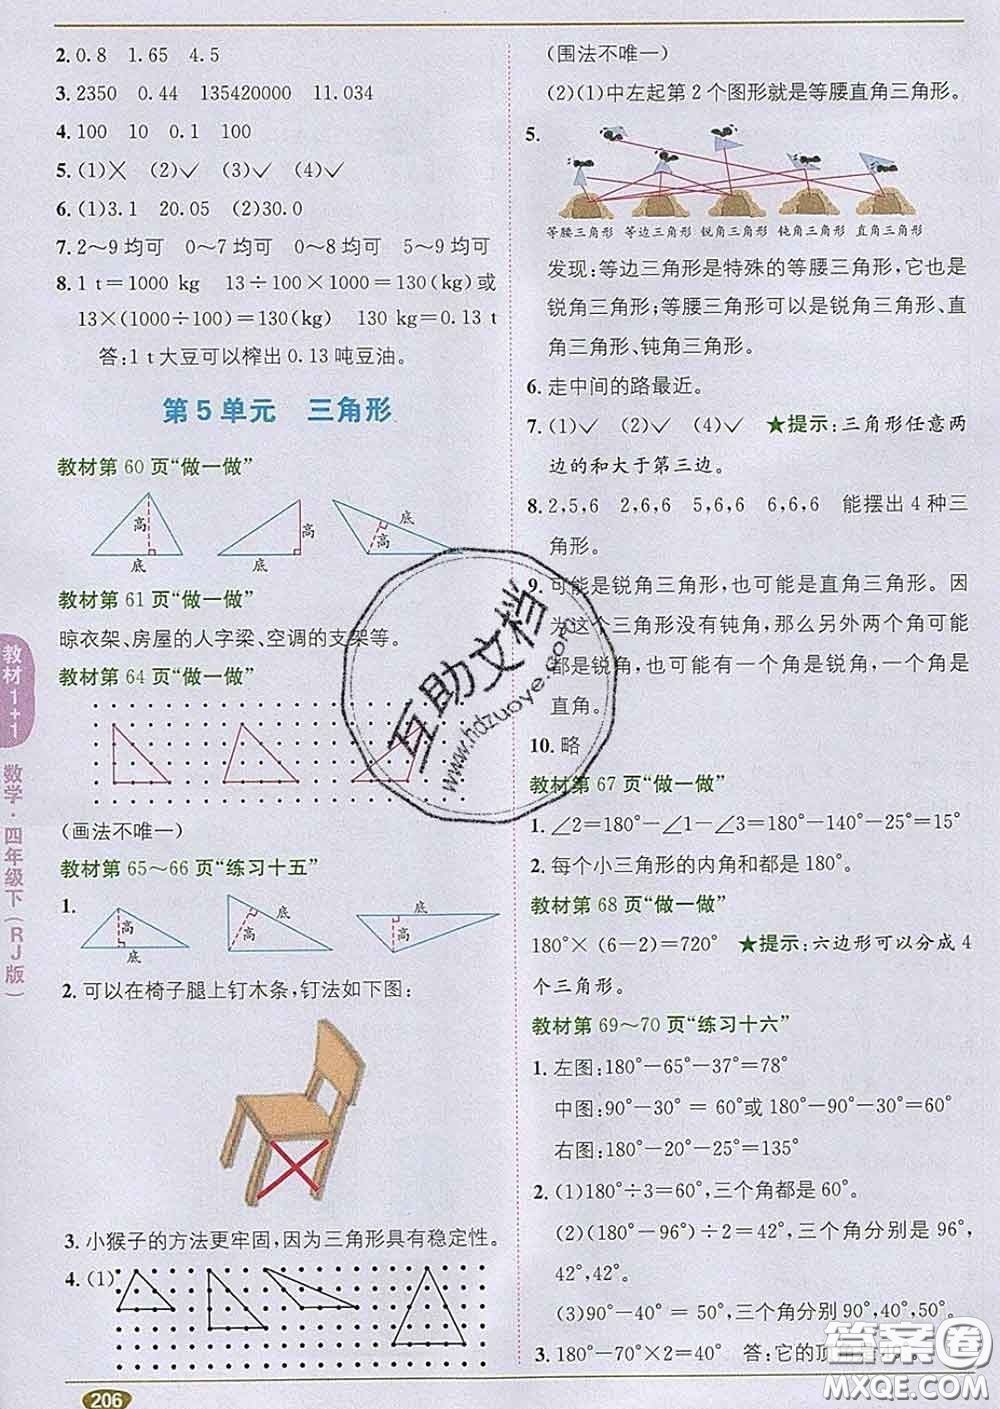 2. 0.8 1.65 4.5
3. 2350 0.44 135420000 11.034
4. 100 10 0.1 100
5. (1)✕ (2)✓ (3)✓ (4)✓
6. (1)3.1 20.05 (2)30.0
7. 2～9均可 0～7均可 0～8均可 5～9均可
8. 1 t＝1000 kg 13÷100×1000＝130(kg)或
13×(1000÷100)＝130(kg) 130 kg＝0.13 t
答:1 t大豆可以榨出0.13吨豆油。
第5单元 三角形
教材第60页“做一做”
高 底
高 底
高 底
教材第61页“做一做”
晾衣架、房屋的人字梁、空调的支架等。
教材第64页“做一做”
(画法不唯一)
教材第65～66页“练习十五”
1.
高 底
高 底
高 底
2. 可以在椅子腿上钉木条,钉法如下图:
3. 小猴子的方法更牢固,因为三角形具有稳定性。
4. (1)
(围法不唯一)
(2)(1)中左起第2个图形就是等腰直角三角形。
5.
等腰三角形 等边三角形 锐角三角形 钝角三角形 直角三角形
发现:等边三角形是特殊的等腰三角形,它也是
锐角三角形;等腰三角形可以是锐角三角形、直
角三角形、钝角三角形。
6. 走中间的路最近。
7. (1)✓ (2)✓ (4)✓ ★提示:三角形任意两
边的和大于第三边。
8. 2,5,6 2,6,6 5,6,6 6,6,6 能摆出4种三
角形。
9. 可能是锐角三角形,也可能是直角三角形。因
为这个三角形没有钝角,那么另外两个角可能
都是锐角,也可能有一个角是锐角,一个角是
直角。
10. 略
教材第67页“做一做”
1. ∠2＝180°－∠1－∠3＝180°－140°－25°＝15°
2. 每个小三角形的内角和都是180°。
教材第68页“做一做”
180°×(6－2)＝720° ★提示:六边形可以分成4
个三角形。
教材第69～70页“练习十六”
1. 左图:180°－65°－37°＝78°
中图:90°－30°＝60°或180°－90°－30°＝60°
右图:180°－20°－25°＝135°
2. (1)180°÷3＝60°,三个角都是60°。
(2)(180°－96°)÷2＝42°,三个角分别是96°,
42°,42°。
(3)90°－40°＝50°,三个角分别90°,40°,50°。
3. 180°－70°×2＝40° 答:它的顶
教材1+1 数学·四年级下(RJ版)
206
互助文档
www.hdzuoye.com
答案圈
MXQE.COM